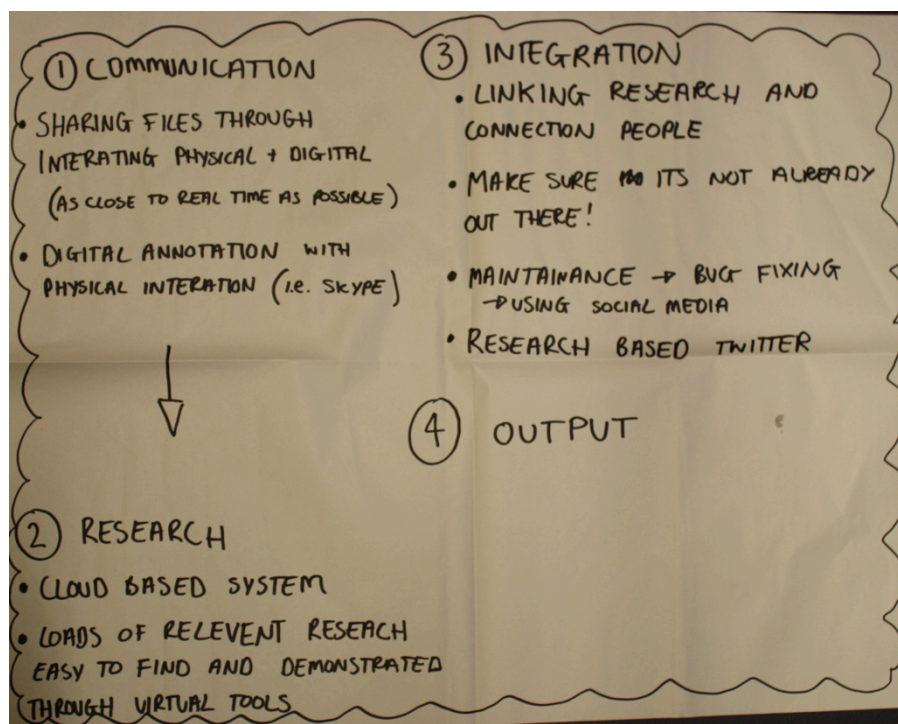 ① COMMUNICATION
• SHARING FILES THROUGH
INTERATING PHYSICAL + DIGITAL
(AS CLOSE TO REAL TIME AS POSSIBLE)
• DIGITAL ANNOTATION WITH
PHYSICAL INTERATION (i.e. SKYPE)
② RESEARCH
• CLOUD BASED SYSTEM
• LOADS OF RELEVENT RESEACH
EASY TO FIND AND DEMONSTRATED
THROUGH VIRTUAL TOOLS
③ INTEGRATION
• LINKING RESEARCH AND
CONNECTION PEOPLE
• MAKE SURE ITS NOT ALREADY
OUT THERE!
• MAINTAINANCE → BUG FIXING
→ USING SOCIAL MEDIA
• RESEARCH BASED TWITTER
④ OUTPUT